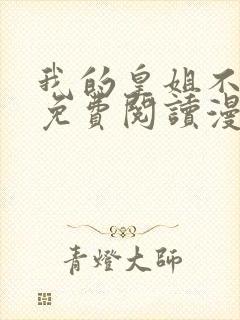 我的皇姐不
免費閱讀漫
青燈大師